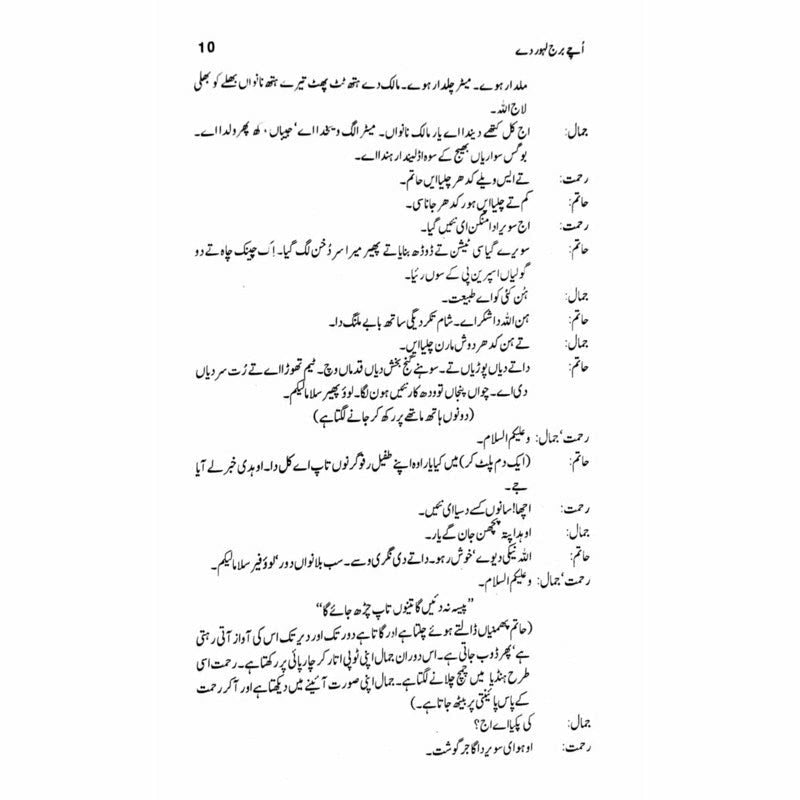 اُچے برج لہور دے 10
ملدار ہوے۔ میٹر چلدار ہوے۔ مالک دے ہتھ ٹٹ پھٹ تیرے ہتھ نانواں بھلے کو بھلی
لاج اللہ۔
جمال: اج کل کتھے دیندا اے یار مالک نانواں۔ میٹر الگ ویخدا اے، جیباں وکھ پھرولدا اے۔
بوگس سواریاں بھیج کے سوہ اڈلیندار ہندا اے۔
رحمت: تے ایس ویلے کدھر چلیا ایں حاتم۔
حاتم: کم تے چلیا ایں ہور کدھر جانا سی۔
رحمت: اج سویرا دامنگن ای نئیں گیا۔
حاتم: سویرے گیا سی ٹیشن تے ڈوڈھ بنایا تے پھیر میرا سر دُخن لگ گیا۔ اِک چینک چاہ تے دو
گولیاں اسپرین پی کے سوں رئیا۔
جمال: ہُن کنی کو اے طبیعت۔
حاتم: ہن اللہ دا شکر اے۔ شام تکر دیگی ساتھ بابے ملنگ دا۔
جمال: تے ہن کدھر دوش مارن چلیا ایں۔
حاتم: داتے دیاں پوڑیاں تے۔ سوہنے گنج بخش دیاں قدماں وچ۔ ٹیم تھوڑا اے تے رُت سردیاں
دی اے۔ چواں پنجاں توو دھ کار نئیں ہون لگا۔ لوؤ پھیر سلاما لیکم۔
(دونوں ہاتھ ماتھے پر رکھ کر جانے لگتا ہے)
رحمت، جمال: وعلیکم السلام۔
حاتم: (ایک دم پلٹ کر) میں کیا یار اوہ اپنے طفیل رفوگر نوں تاپ اے کل دا۔ اوہدی خبر لے آیا
جے۔
رحمت: اچھا! سانوں کسے دسیا ای نئیں۔
جمال: اوہدا پتہ پچھن جان گے یار۔
حاتم: اللہ نیکی دیوے، خوش رہو۔ داتے دی نگری وسے۔ سب بلانواں دور، لوؤ فیر سلاما لیکم۔
رحمت، جمال: وعلیکم السلام۔
”پیسہ نہ دئیں گا تینوں تاپ چڑھ جائے گا“
(حاتم پھمنیاں ڈالتے ہوئے چلتا ہے اور گاتا ہے دور تک اور دیر تک اس کی آواز آتی رہتی
ہے، پھر ڈوب جاتی ہے۔ اس دوران جمال اپنی ٹوپی اتار کر چارپائی پر رکھتا ہے۔ رحمت اسی
طرح ہنڈیا میں چمچ چلانے لگتا ہے۔ جمال اپنی صورت آئینے میں دیکھتا ہے اور آکر رحمت
کے پاس پائینتی پر بیٹھ جاتا ہے۔)
جمال: کی پکیا اے اج؟
رحمت: اوہو ای سویر دا گاجر گوشت۔